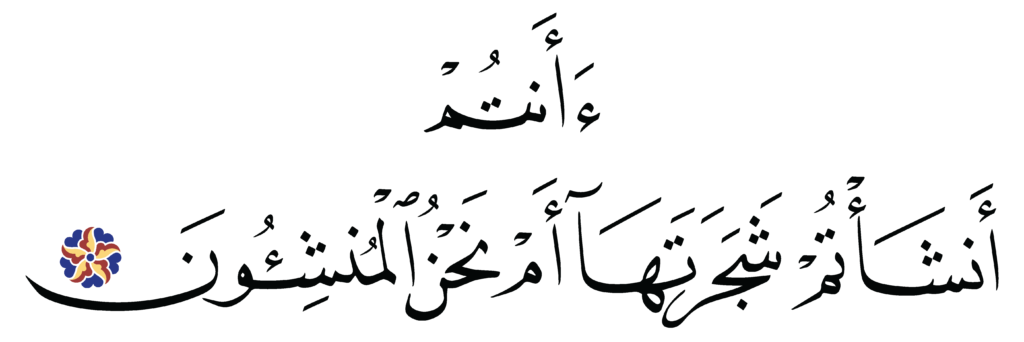 ءَأَنتُمْ
أَنشَأْتُمْ شَجَرَتَهَآ أَمْ نَحْنُ ٱلْمُنشِـُٔونَ